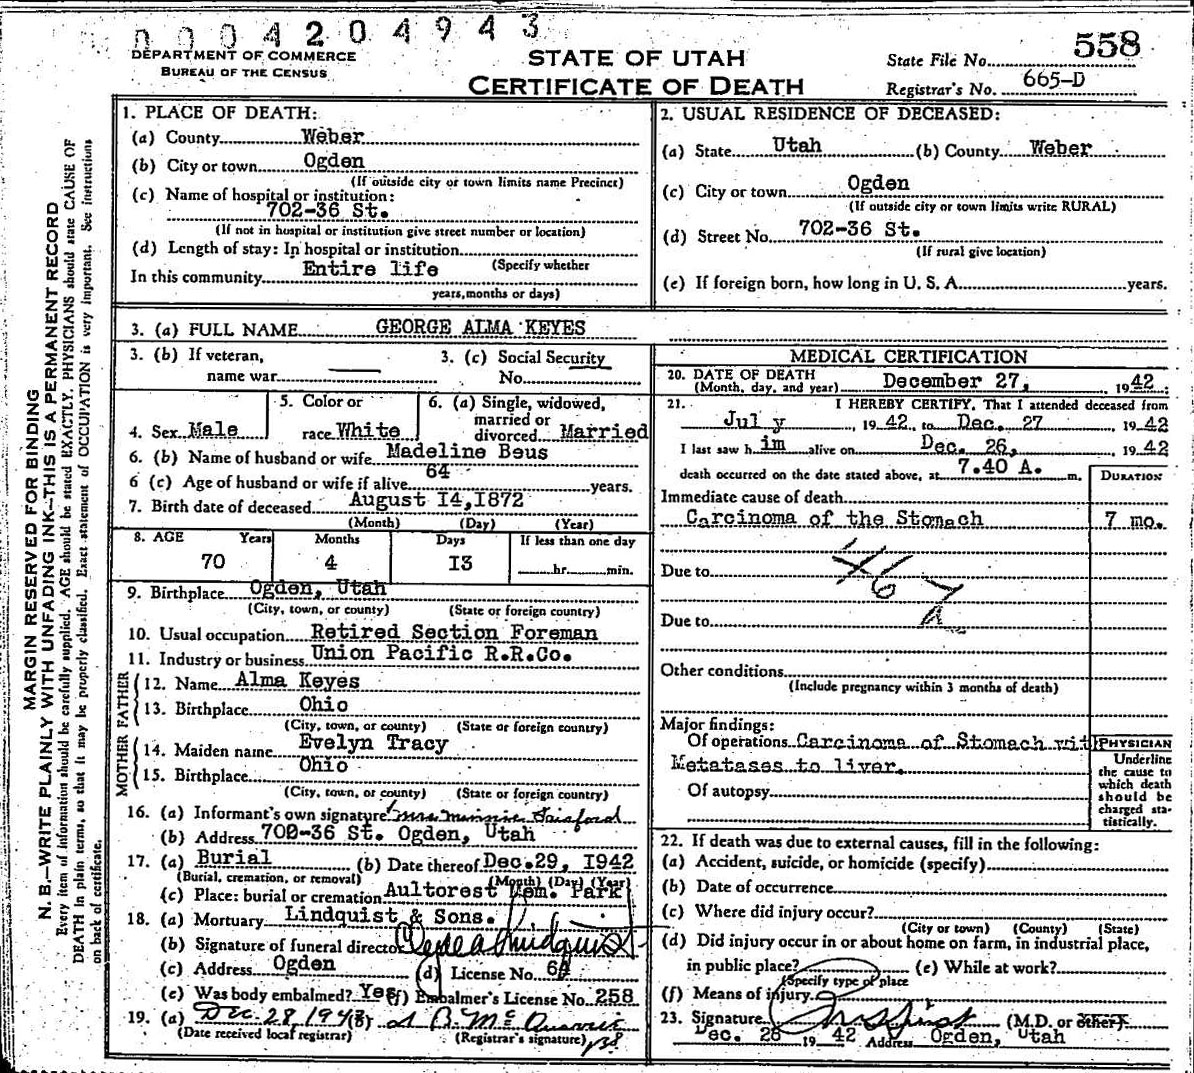 0004204943
DEPARTMENT OF COMMERCE
BUREAU OF THE CENSUS
STATE OF UTAH
CERTIFICATE OF DEATH
State File No. 558
Registrar's No. 665-D
MARGIN RESERVED FOR BINDING
N. B.—WRITE PLAINLY WITH UNFADING INK—THIS IS A PERMANENT RECORD
Every item of information should be carefully supplied. AGE should be stated EXACTLY. PHYSICIANS should state CAUSE OF
DEATH in plain terms, so that it may be properly classified. Exact statement of OCCUPATION is very important. See instructions
on back of certificate.
1. PLACE OF DEATH:
(a) County Weber
(b) City or town Ogden
(If outside city or town limits name Precinct)
(c) Name of hospital or institution:
702-36 St.
(If not in hospital or institution give street number or location)
(d) Length of stay: In hospital or institution
(Specify whether
In this community Entire life
years, months or days)
2. USUAL RESIDENCE OF DECEASED:
(a) State Utah (b) County Weber
(c) City or town Ogden
(If outside city or town limits write RURAL)
(d) Street No. 702-36 St.
(If rural give location)
(e) If foreign born, how long in U. S. A. years.
3. (a) FULL NAME GEORGE ALMA KEYES
3. (b) If veteran, name war
3. (c) Social Security No.
4. Sex Male
5. Color or race White
6. (a) Single, widowed, married or divorced Married
6. (b) Name of husband or wife Madeline Beus
6 (c) Age of husband or wife if alive 64 years.
7. Birth date of deceased August I4,I872
(Month) (Day) (Year)
8. AGE Years Months Days If less than one day
70 4 I3 hr. min.
9. Birthplace Ogden, Utah
(City, town, or county) (State or foreign country)
10. Usual occupation Retired Section Foreman
11. Industry or business Union Pacific R.R.Co.
FATHER
12. Name Alma Keyes
13. Birthplace Ohio
(City, town, or county) (State or foreign country)
MOTHER
14. Maiden name Evelyn Tracy
15. Birthplace Ohio
(City, town, or county) (State or foreign country)
16. (a) Informant's own signature Mrs Minnie
(b) Address 702-36 St. Ogden, Utah
17. (a) Burial (b) Date thereof Dec.29, I942
(Burial, cremation, or removal) (Month) (Day) (Year)
(c) Place: burial or cremation Aultorest Mem. Park
18. (a) Mortuary Lindquist & Sons.
(b) Signature of funeral director
(c) Address Ogden (d) License No. 64
(e) Was body embalmed? Yes (f) Embalmer's License No. 258
19. (a) Dec. 28 1942 (b)
(Date received local registrar) (Registrar's signature)
MEDICAL CERTIFICATION
20. DATE OF DEATH
(Month, day, and year) December 27, 1942
21. I HEREBY CERTIFY, That I attended deceased from
July, 1942, to Dec. 27 1942
I last saw him alive on Dec. 26, 1942
death occurred on the date stated above, at 7.40 A. m.
DURATION
Immediate cause of death
Carcinoma of the Stomach 7 mo.
Due to 46
Due to
Other conditions
(Include pregnancy within 3 months of death)
Major findings:
Of operations Carcinoma of Stomach wit
Metatases to liver.
Of autopsy
PHYSICIAN
Underline
the cause to
which death
should be
charged sta-
tistically.
22. If death was due to external causes, fill in the following:
(a) Accident, suicide, or homicide (specify)
(b) Date of occurrence
(c) Where did injury occur?
(City or town) (County) (State)
(d) Did injury occur in or about home on farm, in industrial place,
in public place? (e) While at work?
(Specify type of place
(f) Means of injury
23. Signature (M.D. or other)
Dec. 28 1942 Address Ogden, Utah